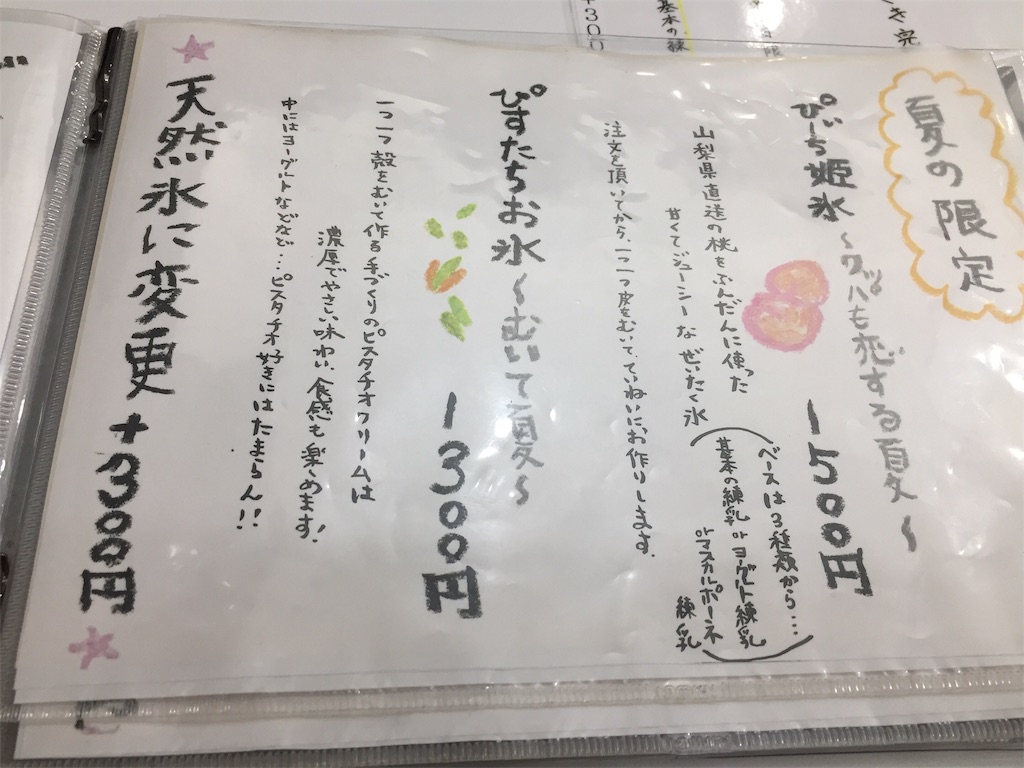 夏の限定
ぴーち姫氷 ～クッパも恋する夏～
1500円
山梨県直送の桃をふんだんに使った
甘くてジューシーなぜいたく氷
ベースは3種類から…
基本の練乳 or ヨーグルト練乳
or マスカルポーネ
練乳
注文を頂いてから、一つ一つ皮をむいて、ていねいにお作りします。
ぴすたちお氷 ～むいて夏～
1300円
一つ一つ殻をむいて作る手づくりのピスタチオクリームは
濃厚でやさしい味わい、食感も楽しめます!
中にはヨーグルトなどなど…ピスタチオ好きにはたまらん!!
天然氷に変更 +300円
¥300
基本の練
き完